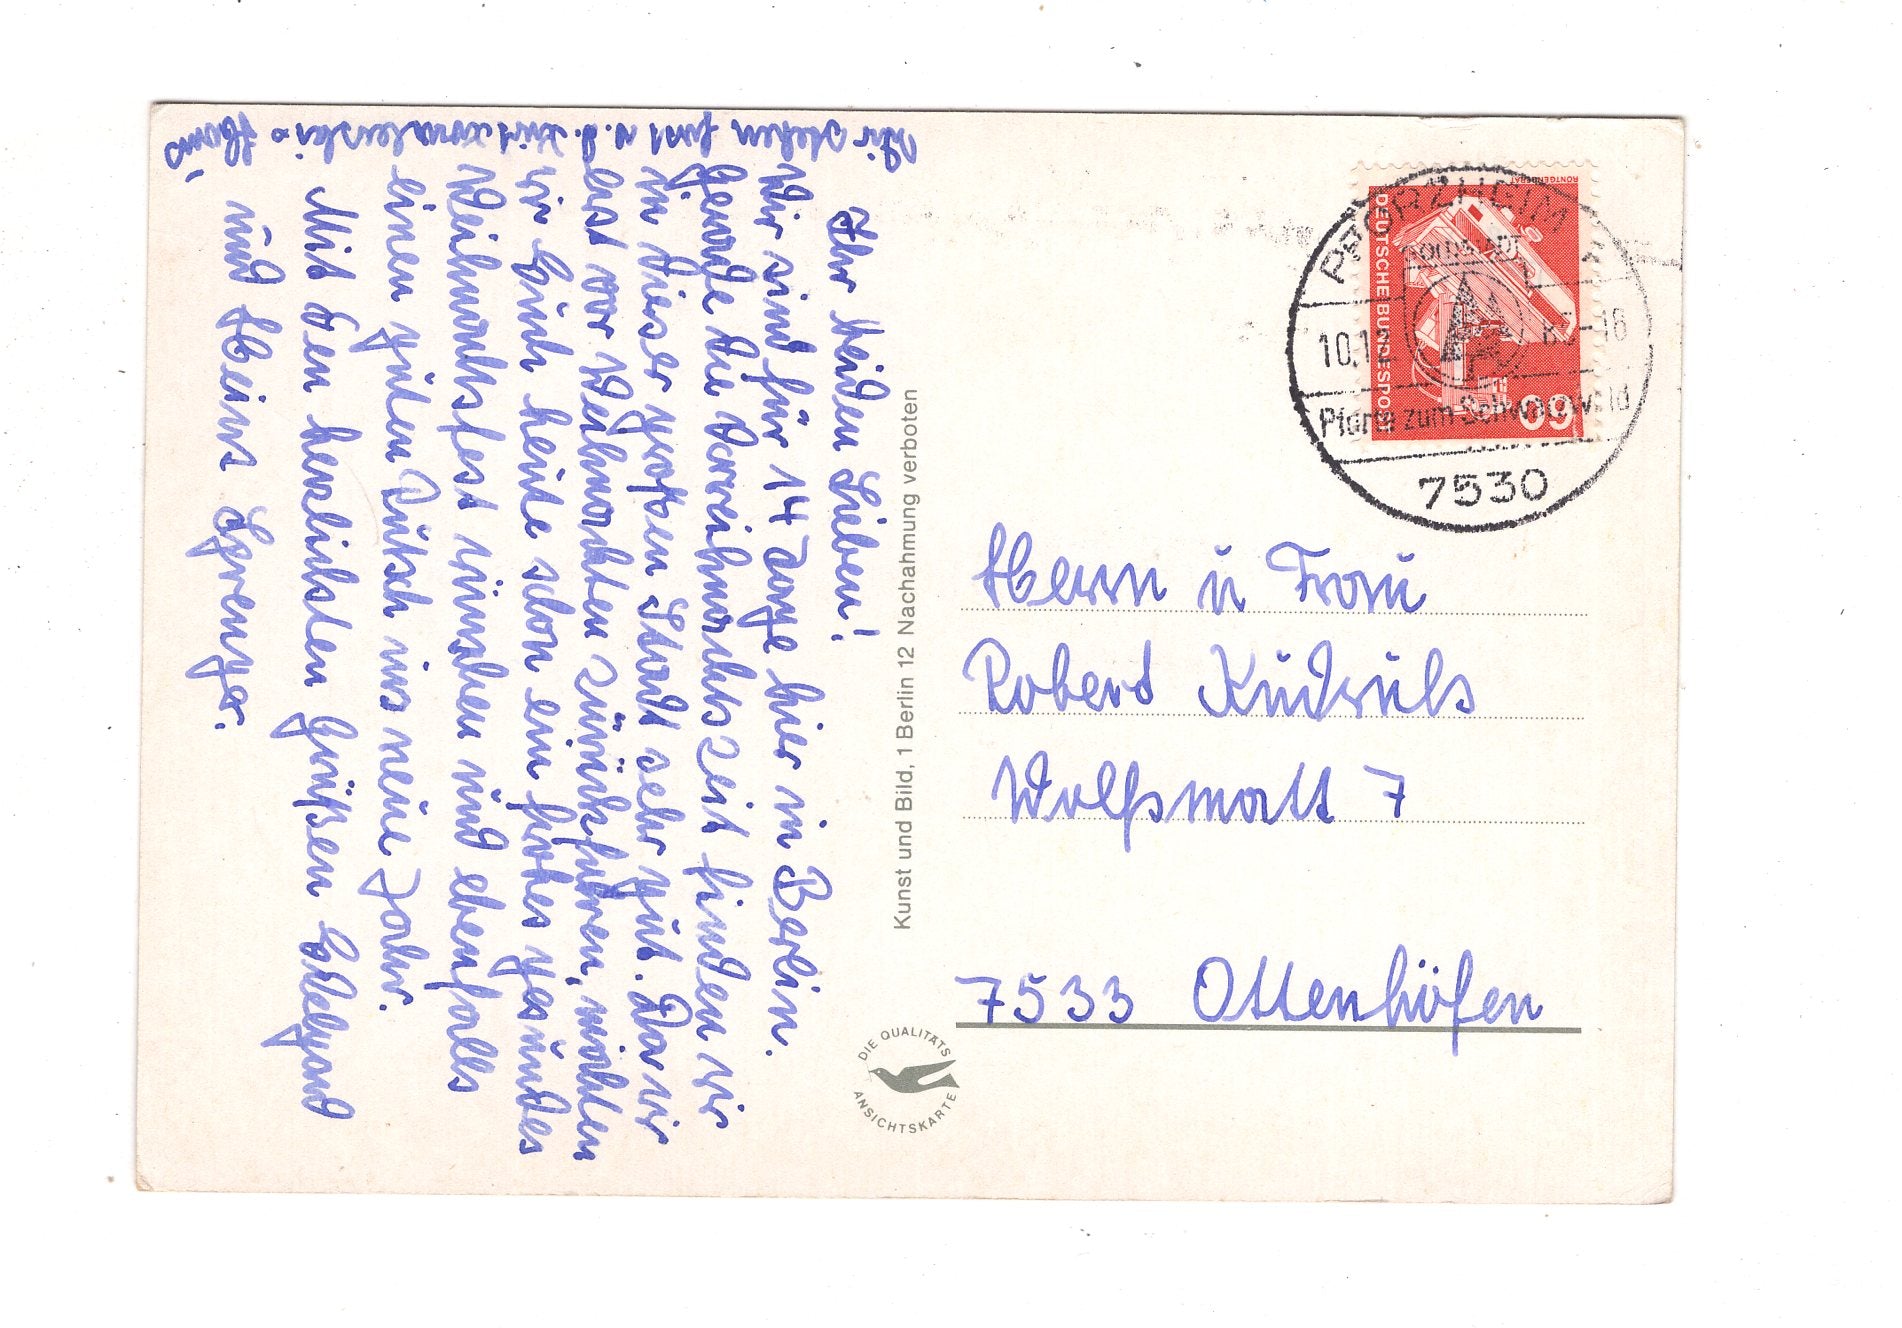 Ihr beiden Lieben!
Wir sind für 14 Tage hier in Berlin.
Gerade die Vorweihnachtszeit finden wir
in dieser großen Stadt sehr gut. Da wir
erst vor Weihnachten zurückfahren, möchten
wir Euch heute schon ein frohes gesundes
Weihnachtsfest wünschen und ebenfalls
einen guten Rutsch ins neue Jahr.
Mit den herzlichsten Grüßen Edelgard
und Heinz Sprenger.
Wir stehen fast v. d.
Kunst und Bild, 1 Berlin 12 Nachahmung verboten
DIE QUALITÄTS
ANSICHTSKARTE
RÖNTGENGERÄT
DEUTSCHE BUNDESPOST
60
PFORZHEIM
GOLDSTADT
10.12
-18
Pforte zum Schwarzwald
7530
Herrn u Frau
Robert
Wolfsmatt 7
7533 Ottenhöfen